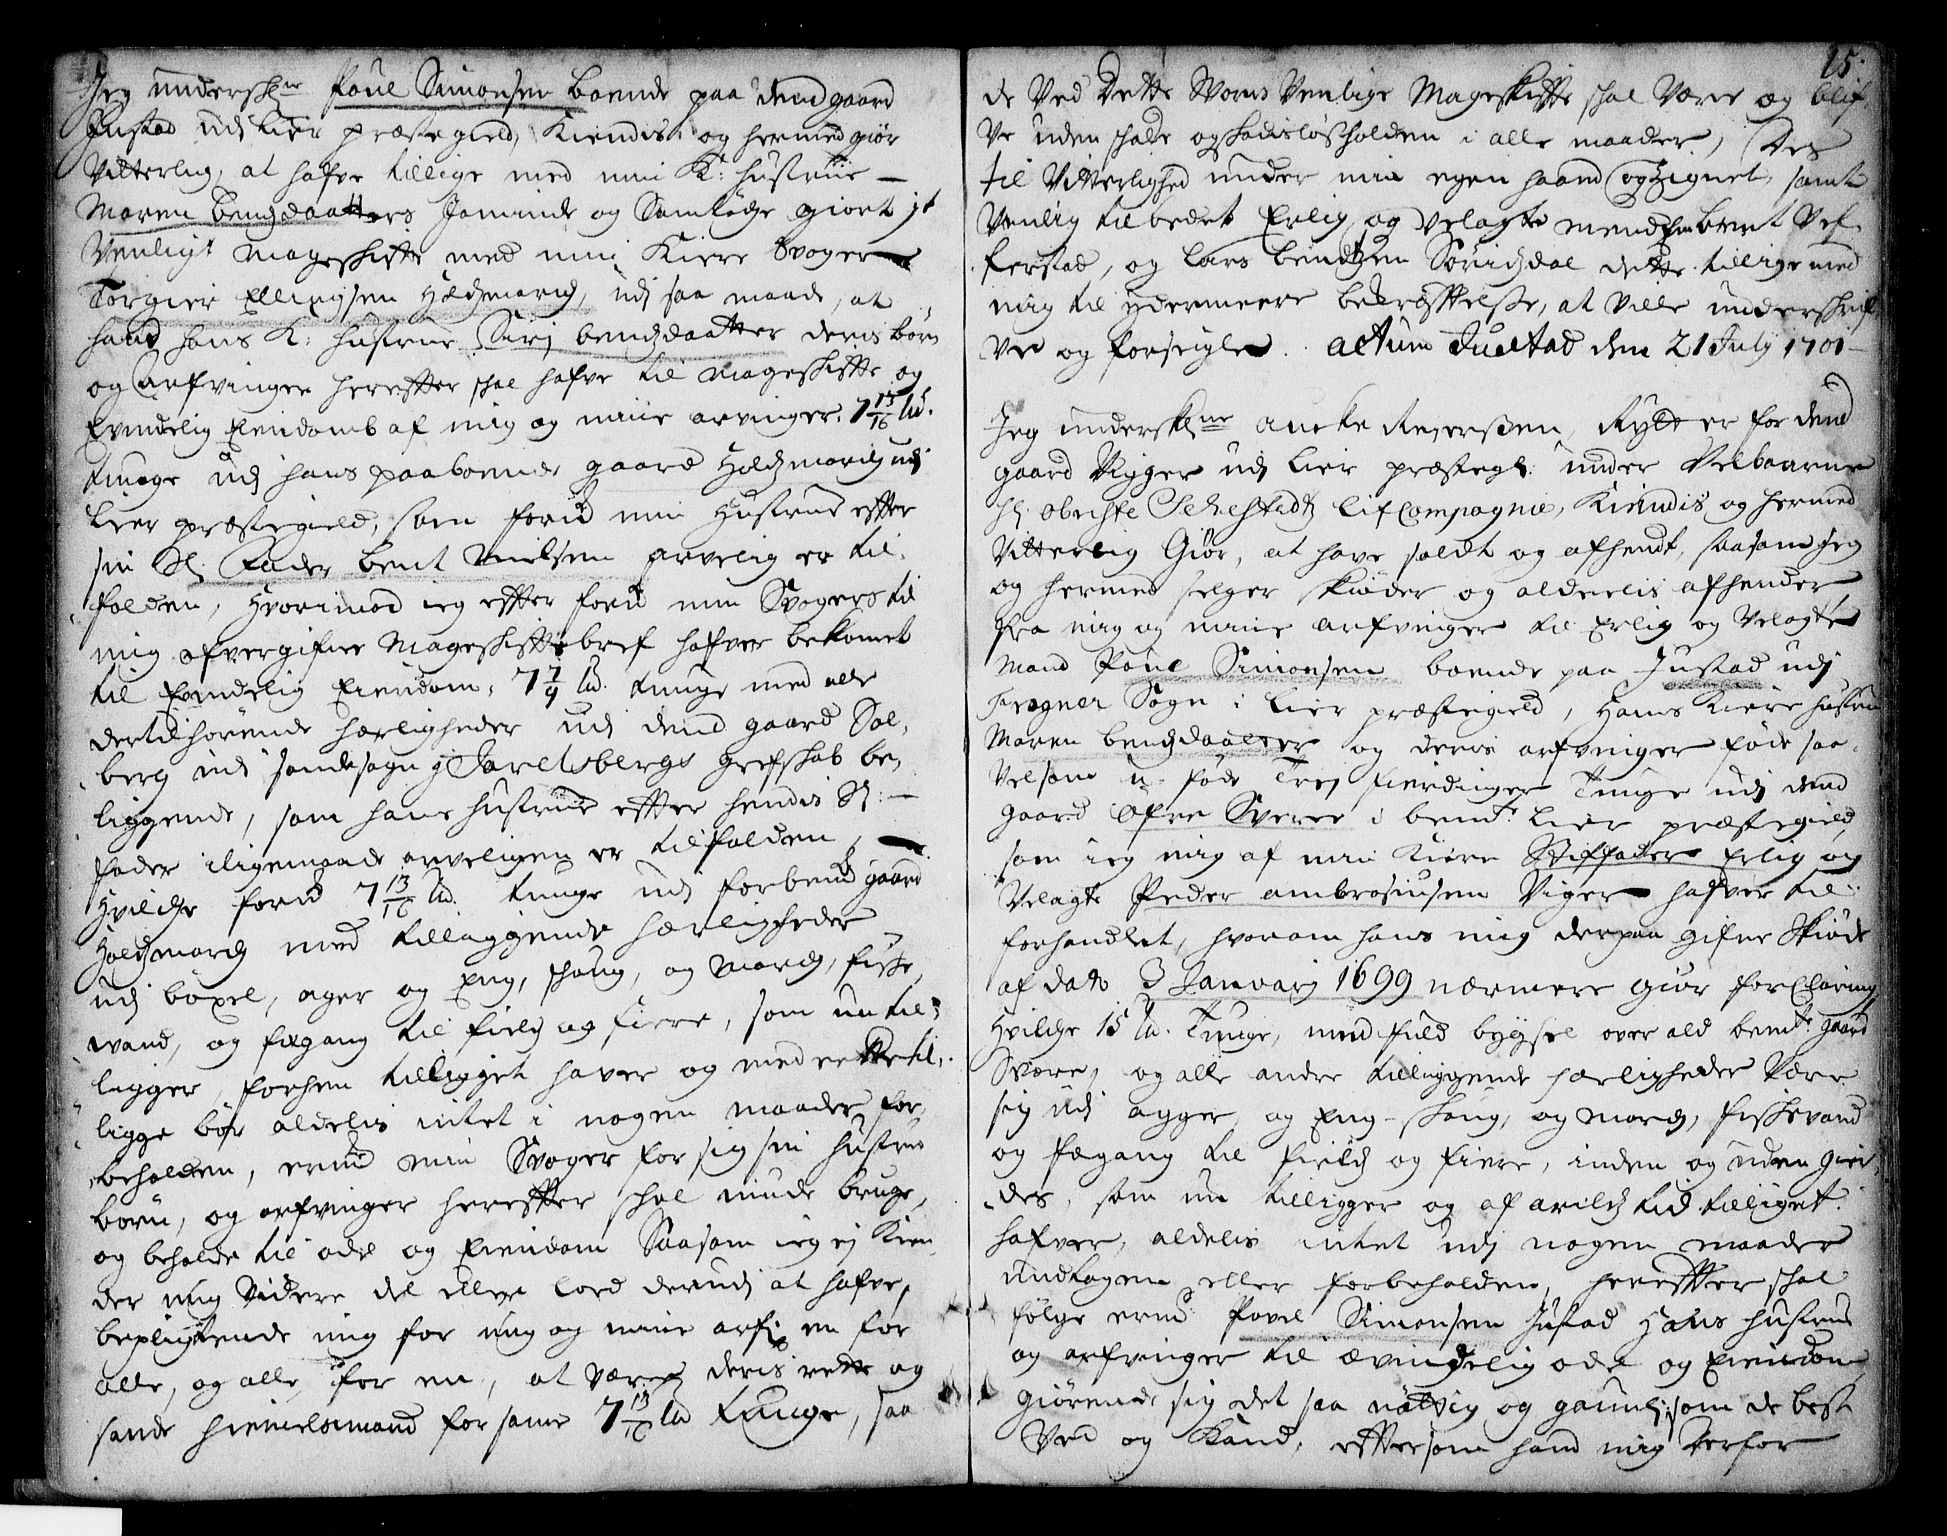 Jeg undersk:ne Poul Simonsen boende paa dend gaard
Justad udj Lier præstegield, Kiendis og hermed giør
Vitterlig, at hafve tillige med min K: hustrue
Maren bendsdaatters Jaminde og Samtøche giort it
Venligt mageskiffte med min Kiere Svoger
Torgier Ellingsen Hældsmarch, udj saa maade, at
hand hans K: hustrue Sirj bendsdaatter deris børn
og arfvinger hereffter schal hafve til mageskiffte og
Evindelig Eiendomb af mig og mine arvinger, 7 13/16 lis.
tunge udj hans paaboende gaard Holdsmarch udj
Lier præstegield, som forn min Hustrue effter
sin Sl. Fader bent Nielsen arvelig er til-
falden, hvorimod ieg effter forn min Svogers til
mig ofvergifne Mageskiffte bref hafver bekomet
til Evindelig Eiendom, 7 7/9 lis. tunge med alle
dertilhørende herligheder udj dend gaard Sol-
berg udj sandesogn j Jarelsbergs grefskab be-
liggende, som hans hustrue effter hendis Sl:
fader iligemaade arveligen er tilfalden,
hvilche forn 7 13/16 lis. tunge udj forbend gaard
Holdsmarch med tilliggende herligheder
udj böxel, ager og Eng, schoug, og March, fische
vand, og fægang til field og fiere, som nu til-
ligger, forhen tilligget haver og med rette til-
ligge bör aldelis intet i nogen maader for-
beholden, ermd min Svoger for sig sin hustrue
börn, og arfvinger hereffter schal niude bruge,
og beholde til odel og Eiendom Saasom ieg ej Kien
der mig Videre del eller lod derudj at hafve,
bepligtende mig for mig og mine arf: en for
alle, og alle for en, at være deris rette og
sande hiemelsmand for same 7 13/16 lis tunge, saa
15.
de Ved Dette Vores Venlige Mageskiffte schal være og blif-
ve uden schade og skadisløsholden i alle maader, Des
til Vitterlighed under min egen haand og Zignet, samt
Venlig tilbedet Erlig og velagte mend bent Vef-
ferstad, og Lars bendtzen Sørisdal dette tillige med
mig til ydermeere bekræfftelse, at ville underschrif-
ve og forseigle. Actum Justad den 21 July 1701
Jeg underskne Aucke Reiersen, Rytter for dend
gaard Vigger udj Lier præstegl: under Velbaarne
hl. obriste Sehestedtz Lifcompagnie, Kiendis og hermed
Vitterlig Giør, at have soldt og afhendt, saasom jeg
og hermed selger skiøder og alderlis afhender
fra mig og mine arfvinger til Erlig og Velagte
Mand Poul Simonsen boende paa Justad udj
Frogner Sogn i Lier præstegield, Hans Kiere hustru
Maren bendsdaatter og deris arfvinger føde saa-
velsom u-føde Trej fierdinger Tunge udj dend
gaard Øfre Sverre i bemt: Lier præstegield,
som ieg mig af min Kiere Stiffader Erlig og
Velagte Peder ambrosiusen Viger hafver til-
forhandlet, hvorom hans mig derpaa gifne Skiøde
af dato 3 Januarij 1699 nærmere giør forClaring
hvilche 15 lis. Tunge, med fuld bygsel over ald bemte gaard
Svere, og alle andre tilliggende herligheder være
sig udj agger og Eng-skoug, og march, fischevand
og fægang til field og fiere, inden og uden gier-
des, som nu tilligger og af arilds tid tilliget
hafver, aldelis intet udj nogen maader
undtagen eller forbeholden, hereffter schal
følge ermd Povel Simonsen Justad hans hustrue
og arfvinger til ævindelig odel og Eiendom
giørende sig det saa nøttig og gaunl: som de best
Ved og Kand, effttersom hand mig derfor